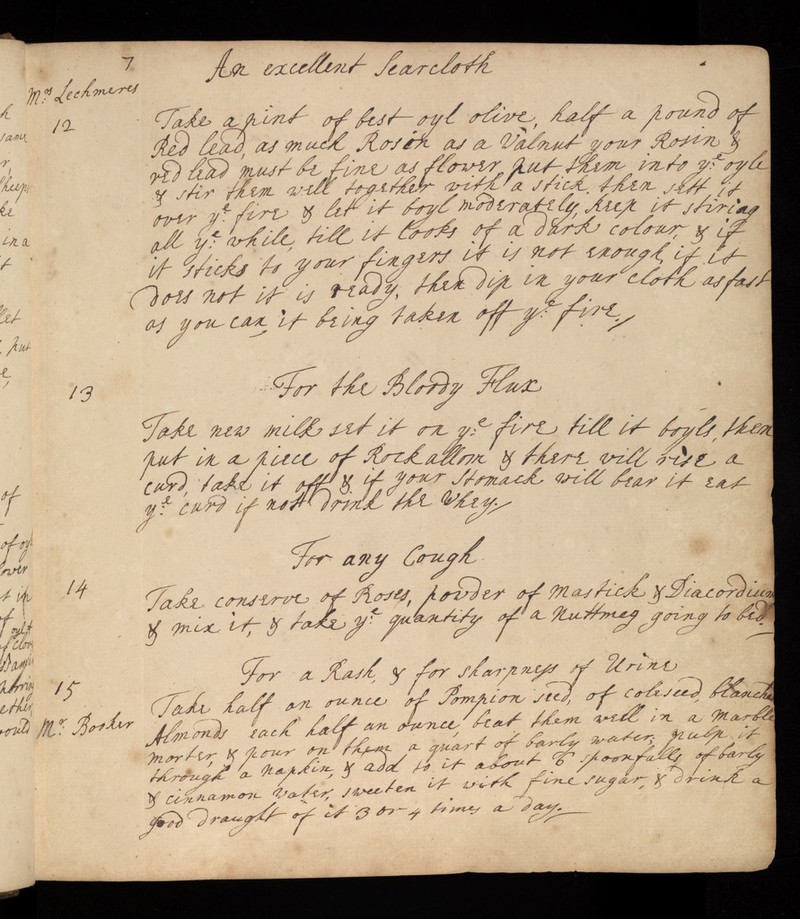 7
An excellent Searcloth
Mrs Lechmeres
12
Take a pint of best oyl olive, half a pound of
Red lead, as much Rosin as a Walnut your Rosin &
red lead must be fine as flower, put them into ye oyle
& stir them well together with a stick, then sett it
over ye fire & let it boyl moderately, keep it stiring
all ye while, till it looks of a dark colour, & if
it sticks to your fingers it is not enough, if it
does not it is ready, then dip in your cloth as fast
as you can, it being taken off ye fire,
13
For the Bloody Flux
Take new milk set it on ye fire till it boyls, then
put in a piece of Rock allom & there will rise a
curd, take it off & if your Stomack will bear it eat
ye curd if not drink the Whey.
For any Cough
14
Take conserve of Roses, powder of mastick & Diacordium
& mix it, & take ye quantity of a Nuttmeg going to bed.
For a Rash, & for sharpness of Urine
15
Take half an ounce of Pompion seed, of coleseed, blanche
Mr. Booker
Almonds each half an ounce, beat them well in a marble
morter, & pour on them a quart of barly water, pulp it
through a napkin, & add to it about 6 spoonfulls of barly
& cinnamon water, sweeten it with fine sugar, & drink a
good draught of it 3 or 4 times a day.